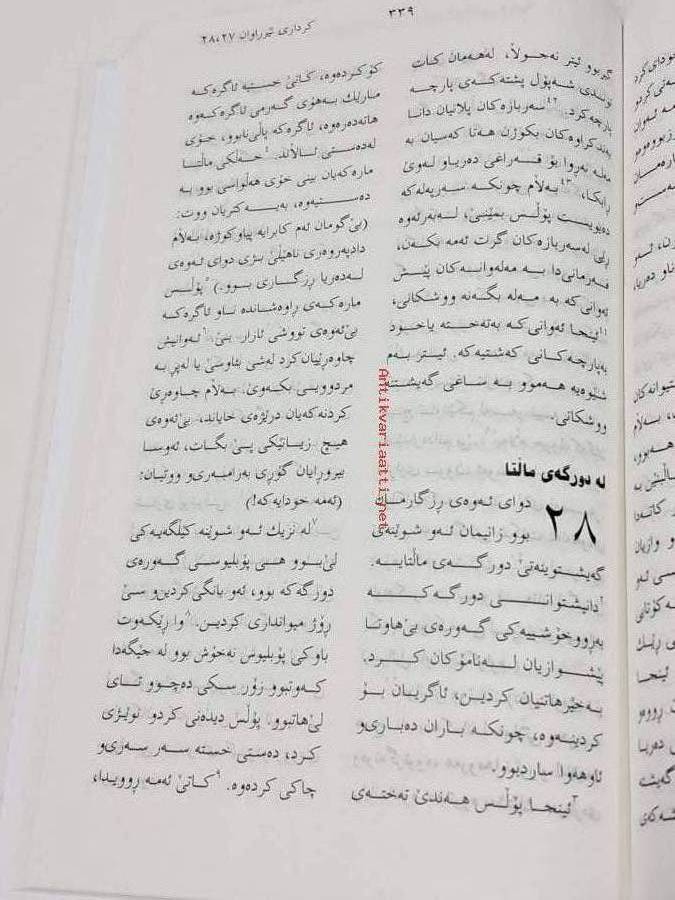 ٣٣٩
کرداری نێرراوان ٢٧، ٢٨
گیربوو ئیتر نەجوڵا، لەهەمان کات
توندی شەپۆل پشتەکەی پارچە
پارچەکرد. ٤٢سەربازەکان پلانیان دانا
بەندکراوەکان بکوژن هەتا کەسیان بە
مەلە نەڕوا بۆ قەراغی دەریاو لەوێ
ڕابکا، ٤٣بەڵام چونکە سەرپەلەکە
دەیویست پۆڵس بمێنێ، لەبەرئەوە
ڕێی لەسەربازەکان گرت ئەمە بکەن،
فەرمانی‌دا بە مەلەوانەکان پێش
ئەوانی‌کە بە مەلە بگەنە ووشکانی،
٤٤ئینجا ئەوانی‌کە بەتەختە یاخود
بەپارچەکانی کەشتیەکە. ئیتر بەم
شێوەیە هەموو بە ساغی گەیشتنە
ووشکانی.
لە دورگەی ماڵتا
٢٨ دوای ئەوەی ڕزگارمان
بوو زانیمان ئەو شوێنەی
گەیشتوینەتێ دورگەی ماڵتایە.
٢دانیشتوانی دورگەکە
بەڕووخۆشییەکی گەورەی بێ‌هاوتا
پێشوازیان لەنامۆکان کرد.
بەخێرهاتنیان کردین، ئاگریان بۆ
کردینەوە، چونکە باران دەباری‌و
ئاوهەوا ساردبوو.
٣ئینجا پۆڵس هەندێ تەختەی
کۆکردەوە، کاتێ خستیە ئاگرەکە
مارێك بەهۆی گەرمی ئاگرەکەوە
هاتەدەرەوە، ئاگرەکە پاڵی‌نابوو، خۆی
لەدەستی ئاڵاند. ٤خەڵکی ماڵتا
مارەکەیان بینی خۆی هەڵواسی بوو بە
دەستیەوە، بەیەکتریان ووت:
(بێ‌گومان ئەم کابرایە پیاوکوژە، بەڵام
دادپەروەری ناهێڵێ بژی دوای ئەوەی
لەدەریا ڕزگاری بوو.) ٥پۆڵس
مارەکەی ڕاوەشاندە ناو ئاگرەکە
بێ‌ئەوەی تووشی ئازار بێ. ٦ئەوانیش
چاوەڕێیان کرد لەشی بئاوسێ یا لەپڕ بە
مردوویی بکەوێ. بەڵام چاوەڕێ
کردنەکەیان درێژەی خایاند، بێ‌ئەوەی
هیچ زیانێکی پێ بگات، ئەوسا
بیروڕایان گۆڕی بەرامبەری‌و ووتیان:
(ئەمە خودایەکە!)
٧لە نزیك ئەو شوێنە کێڵگەیەکی
لێ‌بوو هی پۆبلیوسی گەورەی
دورگەکە بوو، ئەو بانگی کردین‌و سێ
ڕۆژ میوانداری کردین. ٨وا ڕێکەوت
باوکی پۆبلیوس نەخۆش بوو لە جێگەدا
کەوتبوو زۆر سکی دەچوو تای
لێ‌هاتبوو. پۆڵس دیدەنی کردو نوێژی
کرد، دەستی خستە سەر سەری‌و
چاکی کردەوە. ٩کاتێ ئەمە ڕوویدا،
Antikvariaatti.net